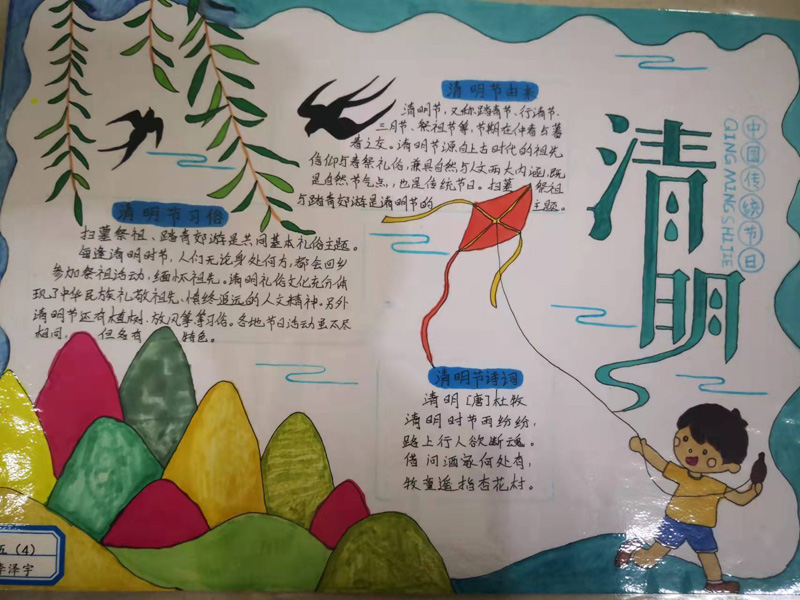 清明
中国传统节日
QING MING SHI JIE
清明节由来
清明节,又称踏青节、行清节、
三月节、祭祖节等,节期在仲春与暮
春之交。清明节源自上古时代的祖先
信仰与春祭礼俗,兼具自然与人文两大内涵,既
是自然节气点,也是传统节日。扫墓 祭祖
与踏青郊游是清明节的 主题。
清明节习俗
扫墓祭祖、踏青郊游是共同基本礼俗主题。
每逢清明时节,人们无论身处何方,都会回乡
参加祭祖活动,缅怀祖先。清明礼俗文化充分体
现了中华民族礼敬祖先、慎终追远的人文精神。另外
清明节还有植树、放风筝等习俗。各地节日活动虽不尽
相同, 但各有 特色。
清明节诗词
清明[唐]杜牧
清明时节雨纷纷,
路上行人欲断魂。
借问酒家何处有,
牧童遥指杏花村。
五(4)
李泽宇